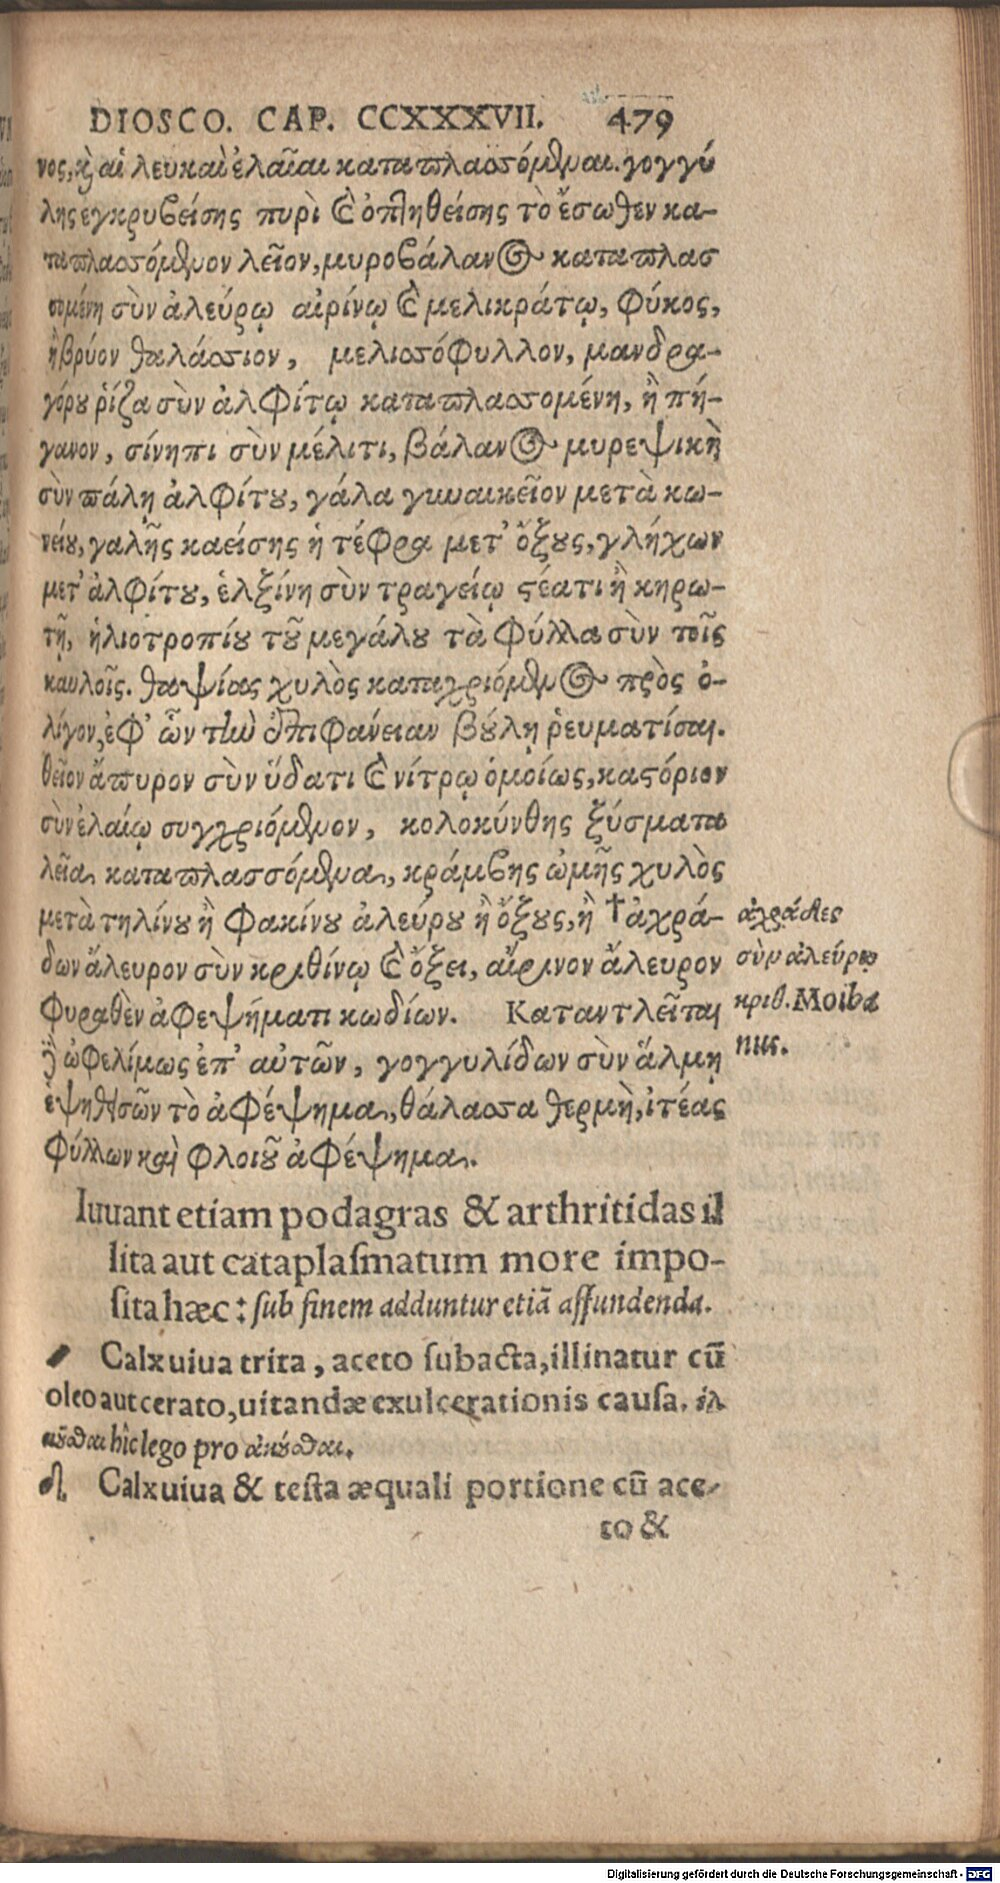 DIOSCO. CAP. CCXXXVII. 479
νος, καὶ αἱ λευκαὶ ἐλαῖαι καταπλασσόμεναι. γογγύ
λης ἐγκρυβείσης πυρὶ καὶ ὀπτηθείσης τὸ ἔσωθεν κα-
ταπλασσόμενον λεῖον, μυροβάλανος καταπλασ
σομένη σὺν ἀλεύρῳ αἰρίνῳ καὶ μελικράτῳ, φύκος,
ἢ βρύον θαλάσσιον, μελισσόφυλλον, μανδρα-
γόρου ῥίζα σὺν ἀλφίτῳ καταπλασσομένη, ἢ πή-
γανον, σίνηπι σὺν μέλιτι, βάλανος μυρεψικὴ
σὺν πάλῃ ἀλφίτου, γάλα γυναικεῖον μετὰ κω-
νείου, γαλῆς καείσης ἡ τέφρα μετ' ὄξους, γλήχων
μετ' ἀλφίτου, ἑλξίνη σὺν τραγείῳ στέατι ἢ κηρω-
τῇ, ἡλιοτροπίου τοῦ μεγάλου τὰ φύλλα σὺν τοῖς
καυλοῖς. θαψίας χυλὸς καταχριόμενος πρὸς ὀ-
λίγον, ἐφ' ὧν τὴν ἐπιφάνειαν βούλῃ ῥευματίσαι.
θεῖον ἄπυρον σὺν ὕδατι καὶ νίτρῳ ὁμοίως, καστόριον
σὺν ἐλαίῳ συγχριόμενον, κολοκύνθης ξύσματα
λεῖα καταπλασσόμενα, κράμβης ὠμῆς χυλὸς
μετὰ τηλίνου ἢ φακίνου ἀλεύρου ἢ ὄξους, ἢ †ἀχρά-
δων ἄλευρον σὺν κριθίνῳ καὶ ὄξει, αἴρινον ἄλευρον
φυραθὲν ἀφεψήματι κωδίων. Καταντλεῖται
δὲ ὠφελίμως ἐπ' αὐτῶν, γογγυλίδων σὺν ἅλμῃ
ἑψηθεισῶν τὸ ἀφέψημα, θάλασσα θερμὴ, ἰτέας
φύλλων καὶ φλοιοῦ ἀφέψημα.
ἀχράδες
σὺν ἀλεύρῳ
κριθ. Moiba
nus.
Iuuant etiam podagras & arthritidas il
lita aut cataplasmatum more impo-
sita hæc: sub finem adduntur etiã affundenda.
Calx uiua trita, aceto subacta, illinatur cũ
oleo aut cerato, uitandæ exulcerationis causa.
hîc lego pro
Calx uiua & testa æquali portione cũ ace-
to &
Digitalisierung gefördert durch die Deutsche Forschungsgemeinschaft - DFG